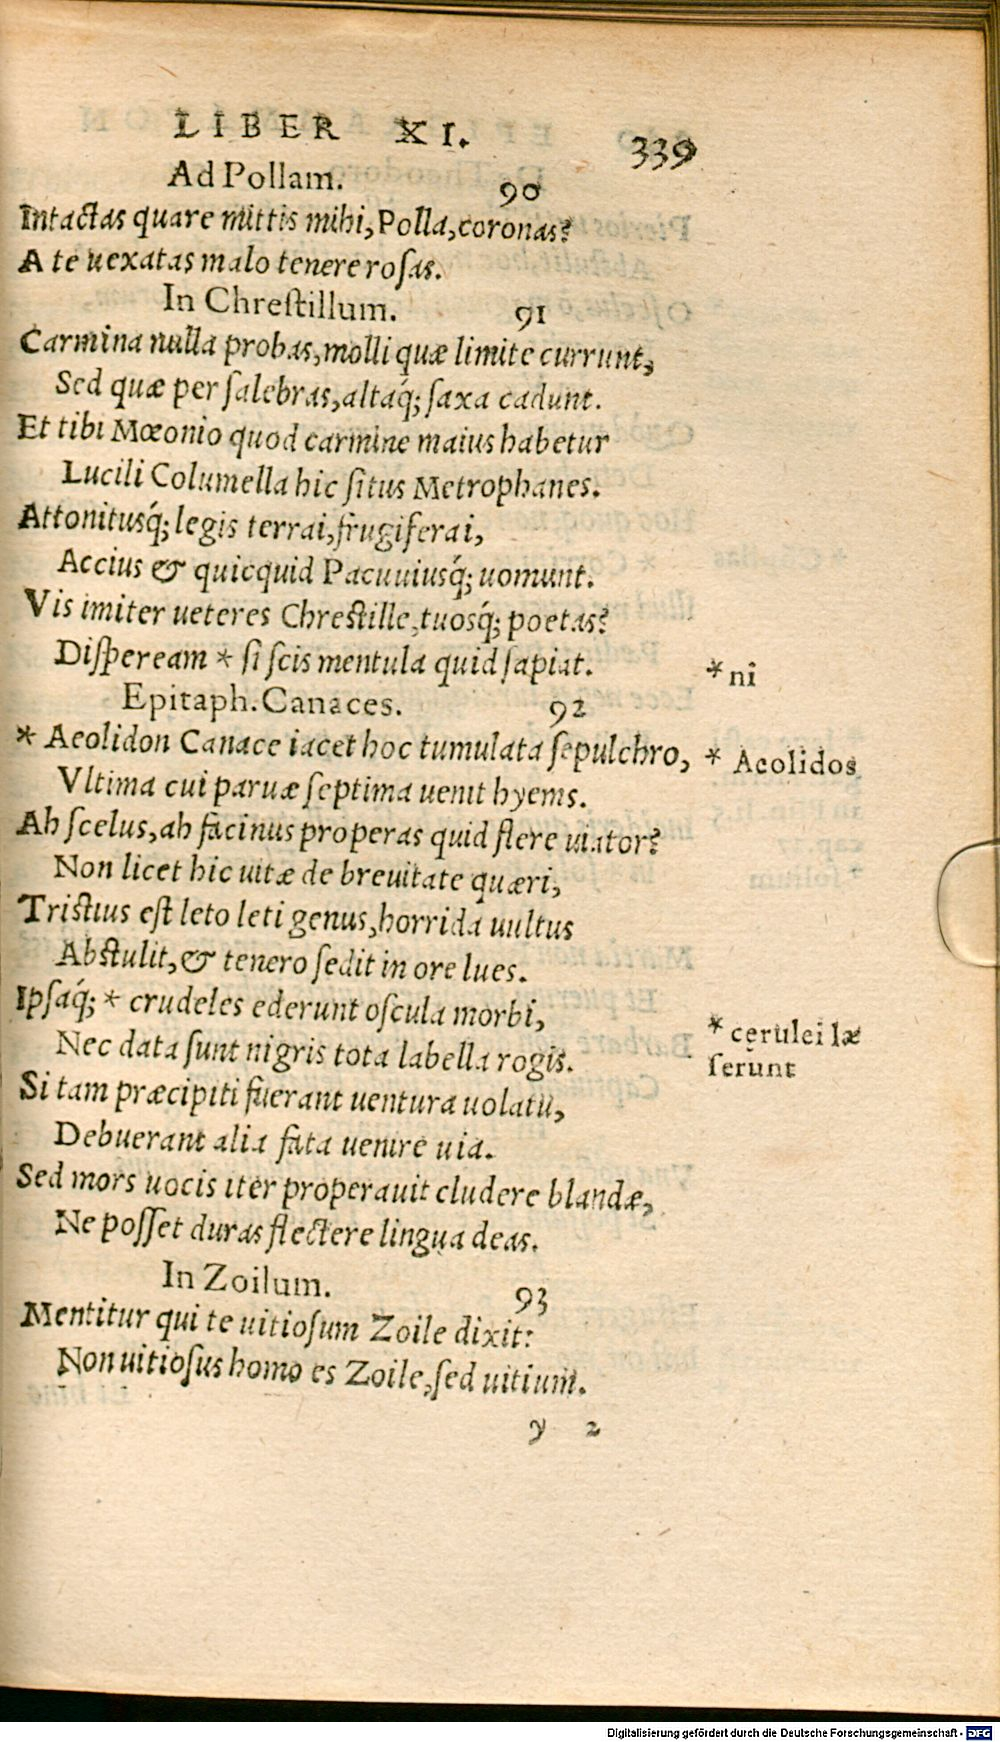 LIBER XI. 339
Ad Pollam. 90
Intactas quare mittis mihi, Polla, coronas?
A te uexatas malo tenere rosas.
In Chrestillum. 91
Carmina nulla probas, molli quæ limite currunt,
Sed quæ per ſalebras, altaq́; ſaxa cadunt.
Et tibi Mœonio quod carmine maius habetur
Lucili Columella hic ſitus Metrophanes.
Attonitusq́; legis terrai, frugiferai,
Accius & quicquid Pacuuiusq́; uomunt.
Vis imiter ueteres Chreſtille, tuosq́; poetas?
Diſpeream * ſi ſcis mentula quid ſapiat.
* ni
Epitaph. Canaces. 92
* Aeolidon Canace iacet hoc tumulata ſepulchro,
* Aeolidos
Vltima cui paruæ ſeptima uenit hyems.
Ah ſcelus, ah facinus properas quid flere uiator?
Non licet hic uitæ de breuitate quæri,
Tristius eſt leto leti genus, horrida uultus
Abſtulit, & tenero ſedit in ore lues.
Ipſaq́; * crudeles ederunt oſcula morbi,
* cerulei læ
ſerunt
Nec data ſunt nigris tota labella rogis.
Si tam præcipiti fuerant uentura uolatu,
Debuerant alia fata uenire uia.
Sed mors uocis iter properauit cludere blandæ,
Ne poſſet duras flectere lingua deas.
In Zoilum. 93
Mentitur qui te uitioſum Zoile dixit:
Non uitioſus homo es Zoile, ſed uitium.
y 2
Digitalisierung gefördert durch die Deutsche Forschungsgemeinschaft - DFG